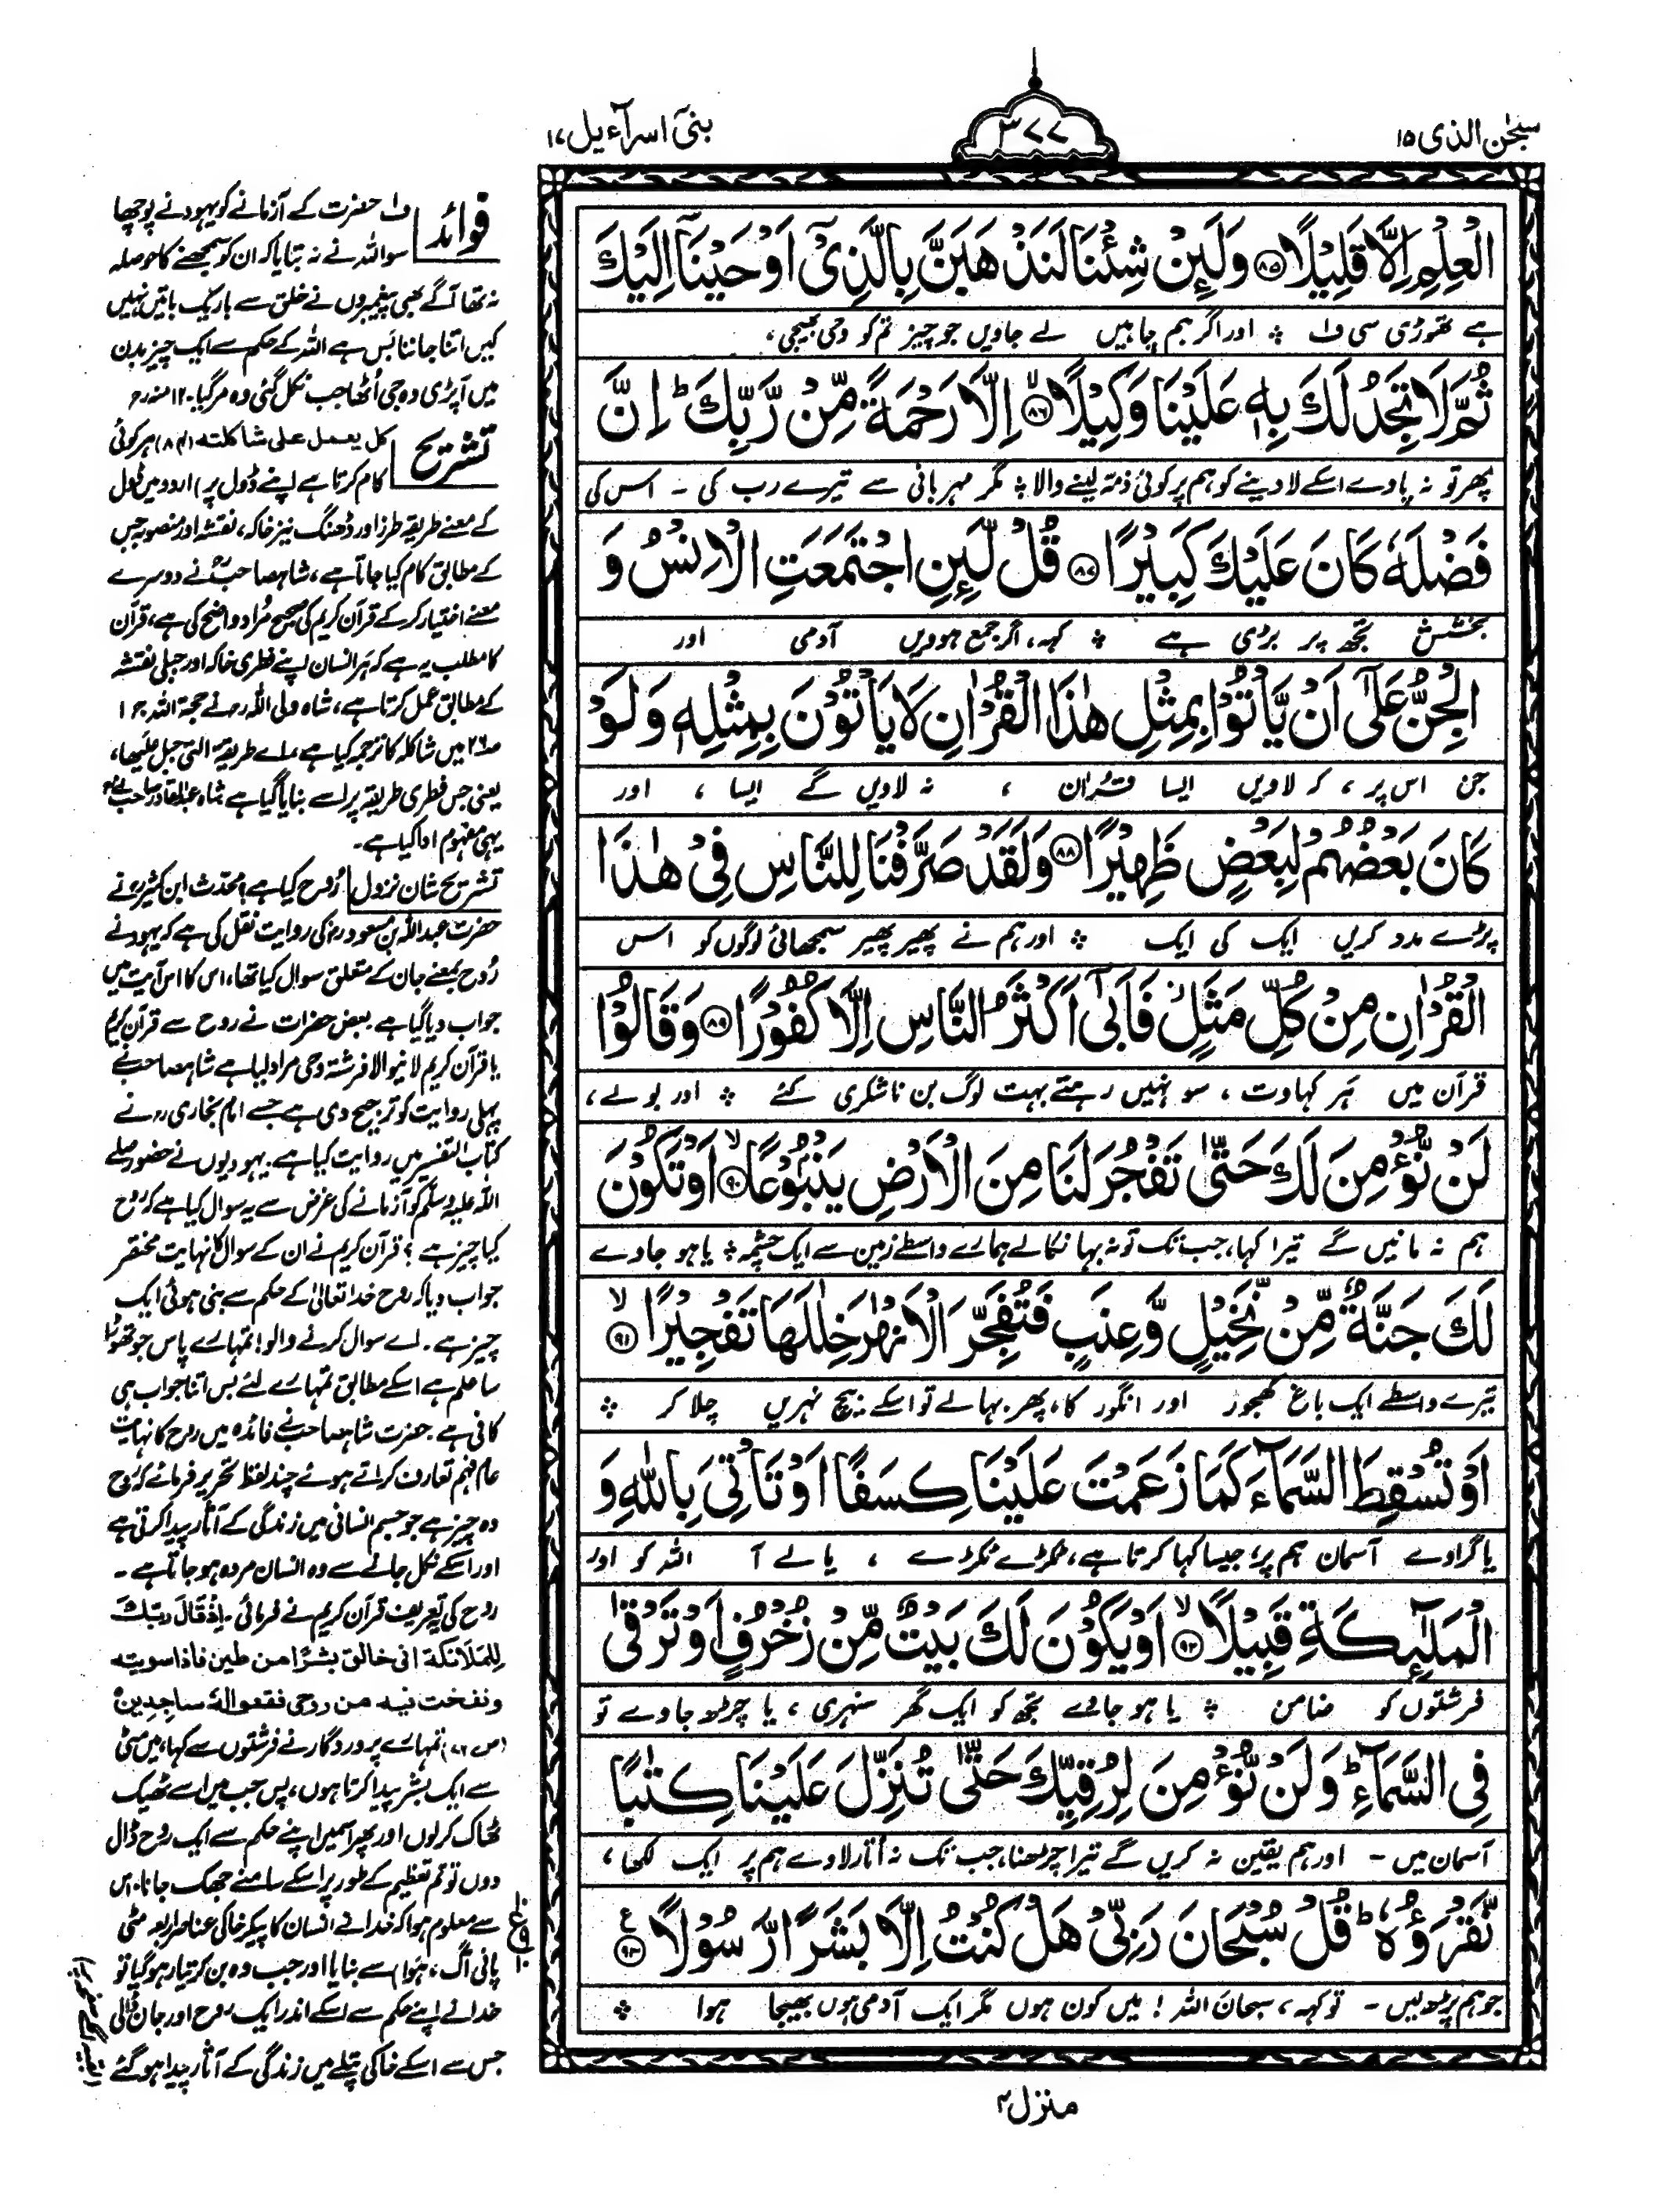 سبحٰن الذی ۱۵
۳۷۷
بنیٓ اسرآءیل ۱۷
الْعِلْمِ اِلَّا قَلِیْلًا ۸۵ وَلَئِنْ شِئْنَا لَنَذْهَبَنَّ بِالَّذِیْٓ اَوْحَیْنَآ اِلَیْكَ
ہے تھوڑی سی ف۱ ؞ اور اگر ہم چاہیں لے جاویں جو چیز تم کو وحی بھیجی،
ثُمَّ لَا تَجِدُ لَكَ بِهٖ عَلَیْنَا وَكِیْلًا ۸۶ اِلَّا رَحْمَةً مِّنْ رَّبِّكَ ؕ اِنَّ
پھر تو نہ پاوے اسکے لا دینے کو ہم پر کوئی ذمہ لینے والا ؞ مگر مہربانی سے تیرے رب کی ۔ اس کی
فَضْلَهٗ كَانَ عَلَیْكَ كَبِیْرًا ۸۷ قُلْ لَّئِنِ اجْتَمَعَتِ الْاِنْسُ وَ
بخشش تجھ پر بڑی ہے ؞ کہہ، اگر جمع ہوویں آدمی اور
الْجِنُّ عَلٰٓی اَنْ یَّاْتُوْا بِمِثْلِ هٰذَا الْقُرْاٰنِ لَا یَاْتُوْنَ بِمِثْلِهٖ وَلَوْ
جن اس پر، کہ لاویں ایسا قرآن ، نہ لاویں گے ایسا ، اور
كَانَ بَعْضُهُمْ لِبَعْضٍ ظَهِیْرًا ۸۸ وَلَقَدْ صَرَّفْنَا لِلنَّاسِ فِیْ هٰذَا
پڑے مدد کریں ایک کی ایک ؞ اور ہم نے پھیر پھیر سمجھائی لوگوں کو اس
الْقُرْاٰنِ مِنْ كُلِّ مَثَلٍ ؗ فَاَبٰٓی اَكْثَرُ النَّاسِ اِلَّا كُفُوْرًا ۸۹ وَقَالُوْا
قرآن میں ہر کہاوت ، سو نہیں رہتے بہت لوگ بن ناشکری کئے ؞ اور بولے،
لَنْ نُّؤْمِنَ لَكَ حَتّٰی تَفْجُرَ لَنَا مِنَ الْاَرْضِ یَنْۢبُوْعًا ۙ۹۰ اَوْ تَكُوْنَ
ہم نہ مانیں گے تیرا کہا، جب تک تو نہ بہا نکالے ہمارے واسطے زمین سے ایک چشمہ ؞ یا ہو جاوے
لَكَ جَنَّةٌ مِّنْ نَّخِیْلٍ وَّعِنَبٍ فَتُفَجِّرَ الْاَنْهٰرَ خِلٰلَهَا تَفْجِیْرًا ۙ۹۱
تیرے واسطے ایک باغ کھجور اور انگور کا، پھر بہا لے تو اسکے بیچ نہریں چلا کر ؞
اَوْ تُسْقِطَ السَّمَآءَ كَمَا زَعَمْتَ عَلَیْنَا كِسَفًا اَوْ تَاْتِیَ بِاللّٰهِ وَ
یا گرادے آسمان ہم پر، جیسا کہا کرتا ہے، ٹکڑے ٹکڑے ، یا لے آ اللہ کو اور
الْمَلٰٓئِكَةِ قَبِیْلًا ۙ۹۲ اَوْ یَكُوْنَ لَكَ بَیْتٌ مِّنْ زُخْرُفٍ اَوْ تَرْقٰی
فرشتوں کو ضامن ؞ یا ہو جاوے تجھ کو ایک گھر سنہری ، یا چڑھ جاوے تو
فِی السَّمَآءِ ؕ وَلَنْ نُّؤْمِنَ لِرُقِیِّكَ حَتّٰی تُنَزِّلَ عَلَیْنَا كِتٰبًا
آسمان میں ۔ اور ہم یقین نہ کریں گے تیرا چڑھنا، جب تک نہ اُتار لاوے ہم پر ایک لکھا،
نَّقْرَؤُهٗ ؕ قُلْ سُبْحَانَ رَبِّیْ هَلْ كُنْتُ اِلَّا بَشَرًا رَّسُوْلًا ۹۳ ع
جو ہم پڑھ لیں ۔ تو کہہ، سبحان اللہ ! میں کون ہوں مگر ایک آدمی ہوں بھیجا ہوا ؞
منزل ۴
فوائد ف۱ حضرت کے آزمانے کو یہود نے پوچھا
سو اللہ نے نہ بتایا کہ ان کو سمجھنے کا حوصلہ
نہ تھا آگے بھی پیغمبروں نے خلق سے باریک باتیں نہیں
کیں اتنا جاننا بس ہے اللہ کے حکم سے ایک چیز بدن
میں آپڑی وہ جی اُٹھا جب نکل گئی وہ مر گیا۔ ۱۲ منہ رح
تشریح کل یعمل علی شاکلتہ (۸۴) ہر کوئی
کام کرتا ہے اپنے ڈول پر) اردو میں ڈول
کے معنے طریقہ طرز اور ڈھنگ نیز خاکہ، نقشہ اور منصوبہ جس
کے مطابق کام کیا جاتا ہے، شاہصاحبؒ نے دوسرے
معنے اختیار کرکے قرآن کریم کی صحیح مُراد واضح کی ہے، قرآن
کا مطلب یہ ہے کہ ہر انسان اپنے فطری خاکہ اور جبلی نقشہ
کے مطابق عمل کرتا ہے، شاہ ولی اللہ رح نے حجۃ اللہ ج ۱
ص۲۶ میں شاکلہ کا ترجمہ کیا ہے، اے طریقۃ التی جبل علیھا،
یعنی جس فطری طریقہ پر اسے بنایا گیا ہے شاہ عبدالقادر صاحب نے بھی
یہی مفہوم ادا کیا ہے۔
تشریح شان نزول رُوح کیا ہے؟ محدث ابن کثیرؒ نے
حضرت عبداللہ بن مسعود رض کی روایت نقل کی ہے کہ یہود نے
رُوح بمعنے جان کے متعلق سوال کیا تھا، اس کا اس آیت میں
جواب دیا گیا ہے۔ بعض حضرات نے روح سے قرآن کریم
یا قرآن کریم لانیوالا فرشتہ وحی مراد لیا ہے شاہصاحب نے
پہلی روایت کو ترجیح دی ہے جسے امام بخاری رح نے
کتاب التفسیر میں روایت کیا ہے۔ یہودیوں نے حضور صلے
اللہ علیہ وسلم کو آزمانے کی غرض سے یہ سوال کیا ہے کہ روح
کیا چیز ہے ؟ قرآن کریم نے ان کے سوال کا نہایت مختصر
جواب دیا کہ روح خدا تعالیٰ کے حکم سے بنی ہوئی ایک
چیز ہے۔ اے سوال کرنے والو! تمہارے پاس جو تھوڑا
سا علم ہے اسکے مطابق تمہارے لئے بس اتنا جواب ہی
کافی ہے۔ حضرت شاہصاحب نے فائدہ میں روح کا نہایت
عام فہم تعارف کراتے ہوئے چند لفظ تحریر فرمائے کہ رُوح
وہ چیز ہے جو جسم انسانی میں زندگی کے آثار پیدا کرتی ہے
اور اسکے نکل جانے سے وہ انسان مردہ ہو جاتا ہے۔
روح کی تعریف قرآن کریم نے فرمائی۔ اِذْ قَالَ رَبُّكَ
لِلْمَلَائکة انی خالق بشرًا من طین فاذا سویته
و نفخت فیه من روحی فقعوا له ساجدین
(ص ۷۲) تمہارے پروردگار نے فرشتوں سے کہا، میں مٹی
سے ایک بشر پیدا کرتا ہوں، پس جب میں اسے ٹھیک
ٹھاک کرلوں اور پھر اسمیں اپنے حکم سے ایک روح ڈال
دوں تو تم تعظیم کے طور پر اسکے سامنے جھک جانا، اس
سے معلوم ہوا کہ خدا نے انسان کا پیکر خاکی عناصر اربعہ مٹی
پانی آگ، ہوا) سے بنایا اور جب وہ بن کر تیار ہو گیا تو
خدا نے اپنے حکم سے اسکے اندر ایک روح اور جان ڈالی
جس سے اسکے خاکی پتلے میں زندگی کے آثار پیدا ہو گئے